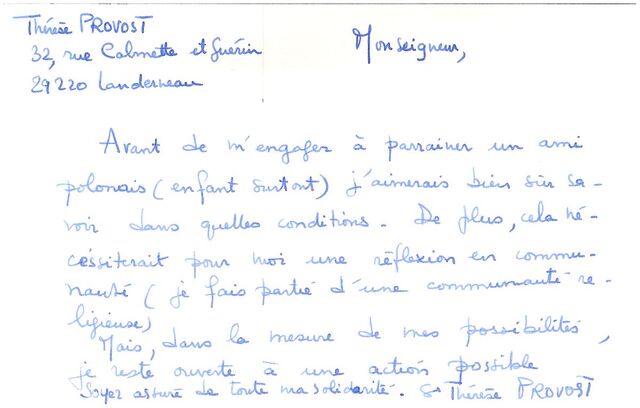 Thérèse PROVOST
32, rue Calmette et Guérin
29220 Landerneau
Monseigneur,
Avant de m'engager à parrainer un ami
polonais (enfant surtout) j'aimerais bien sûr sa-
voir dans quelles conditions. De plus, cela né-
céssiterait pour moi une réflexion en commu-
nauté (je fais partie d'une communauté re-
ligieuse)
Mais, dans la mesure de mes possibilités,
je reste ouverte à une action possible
Soyez assuré de toute ma solidarité. Sr Thérèse PROVOST